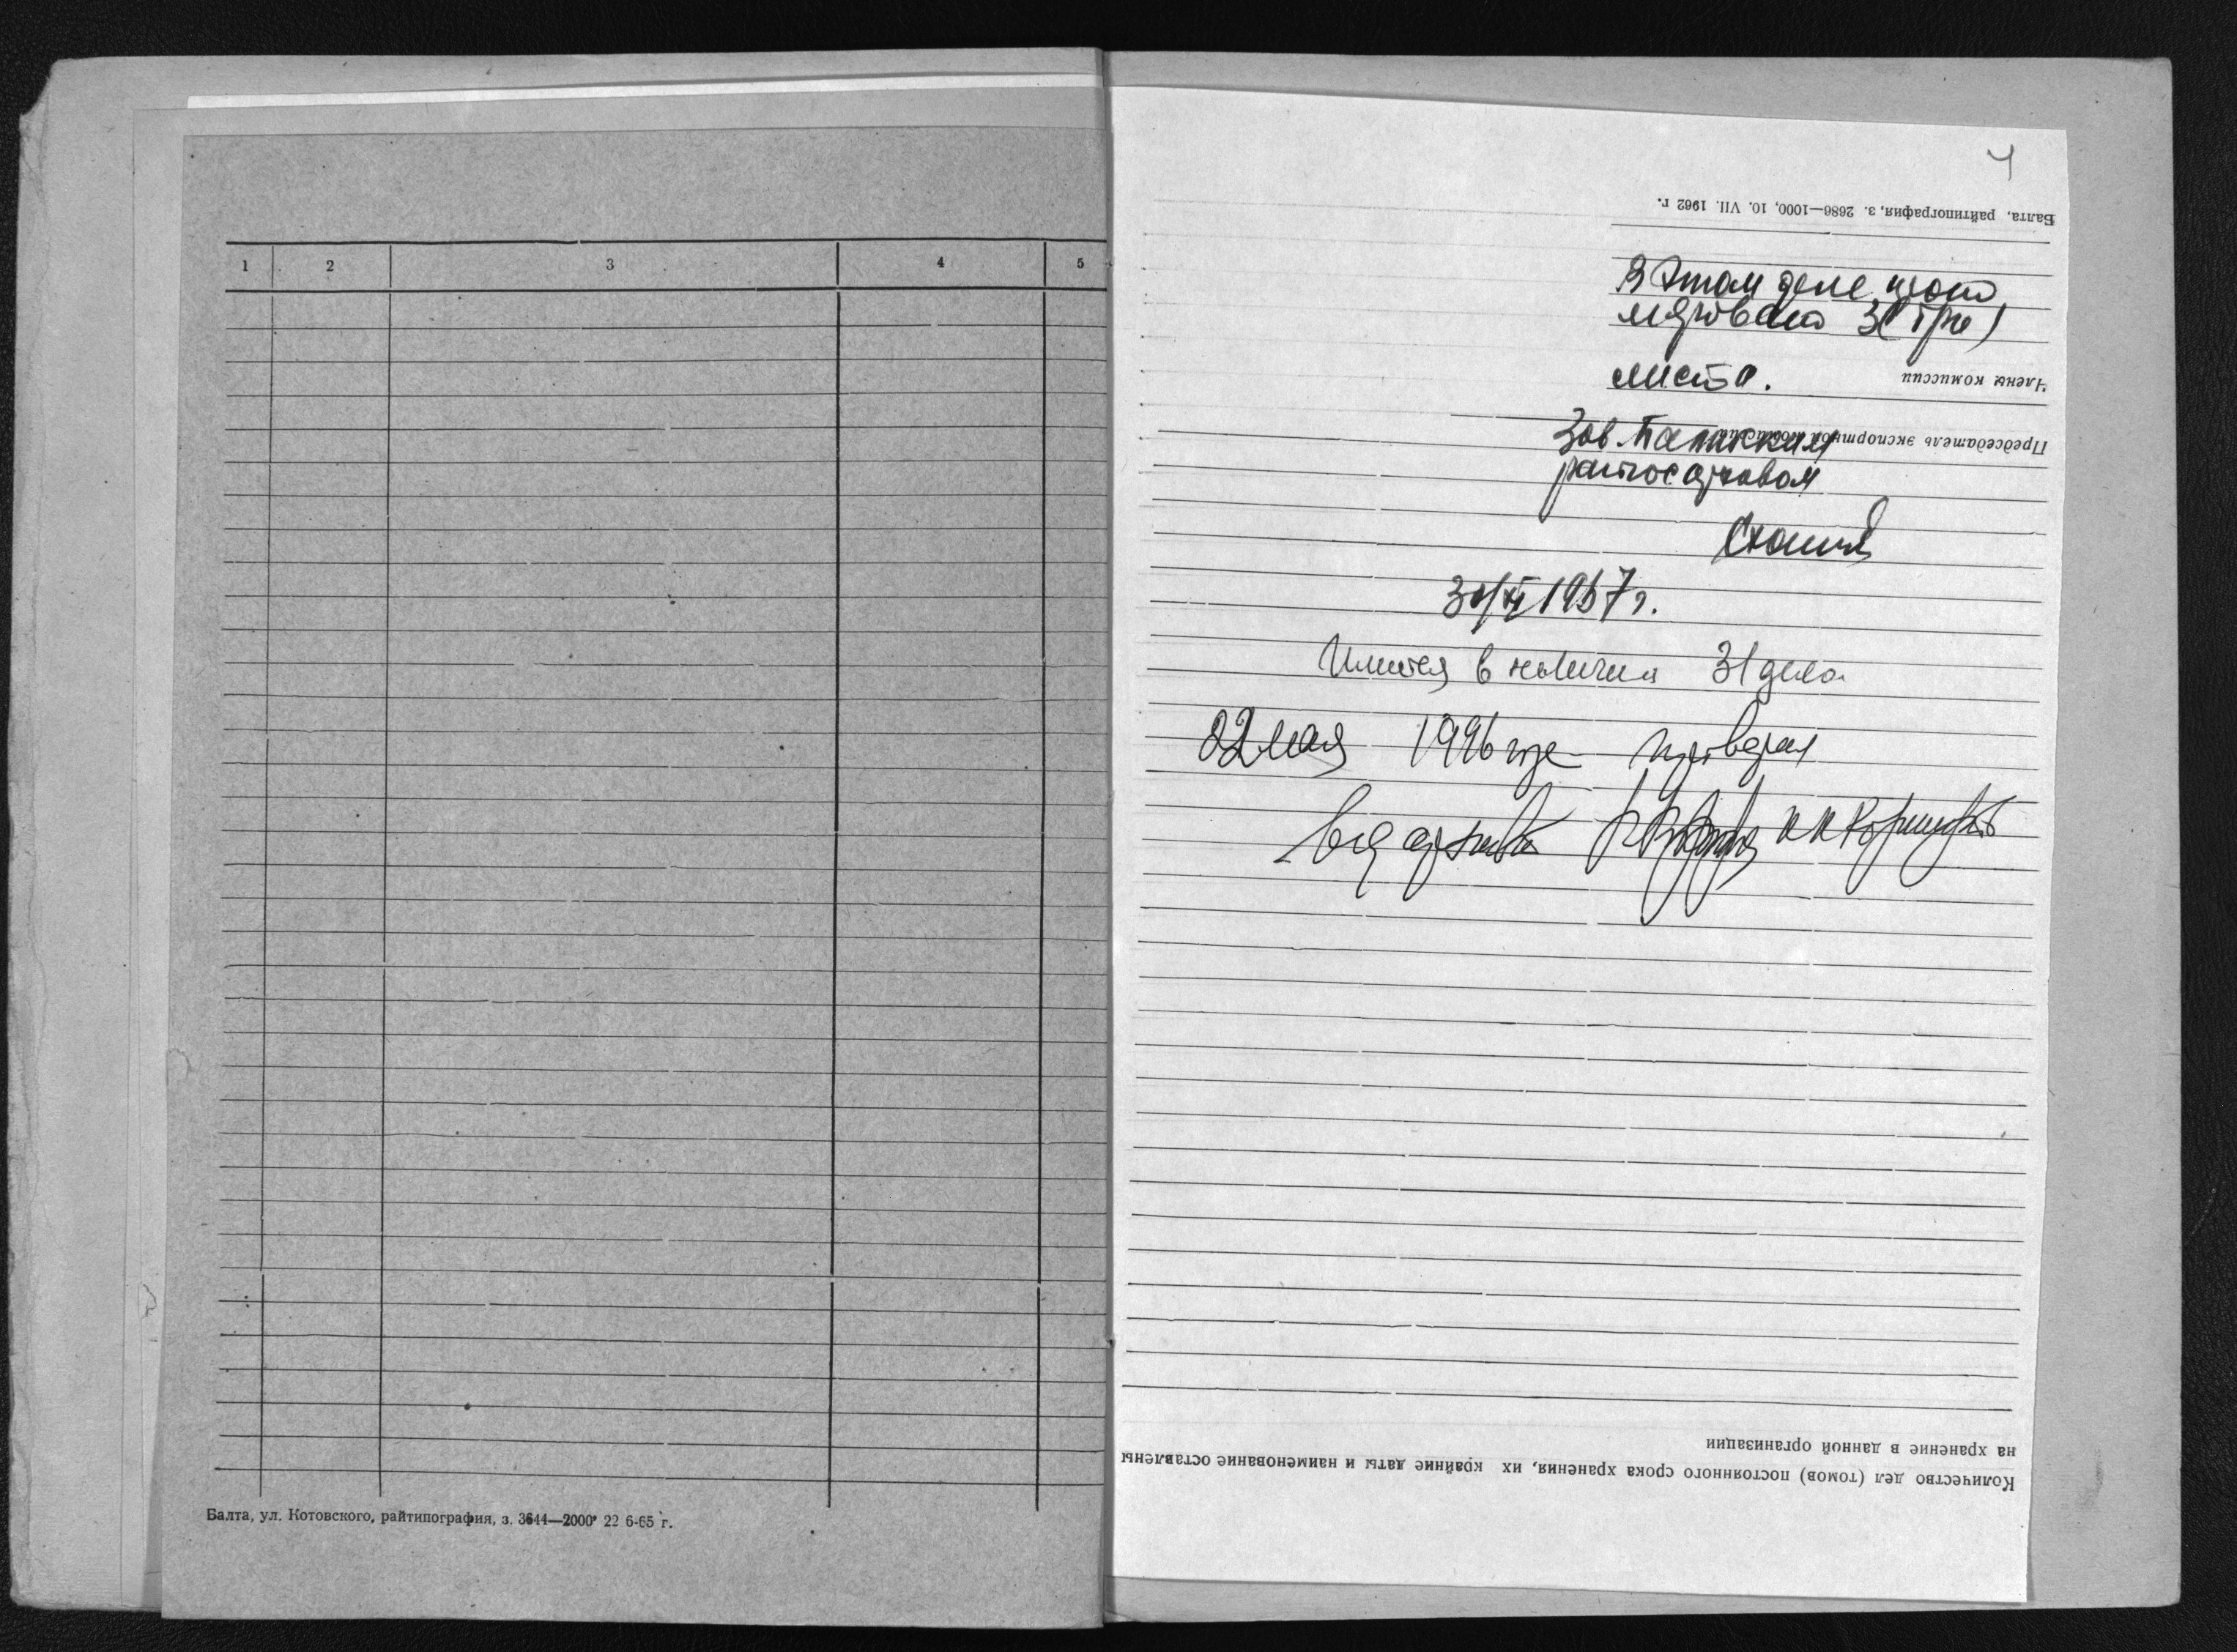 1 2 3 4 5
Балта, ул. Котовского, райтипография, з. 3644—2000 22 6-65 г.
4
Балта, райтипография, з. 2686—1000, 10. VII. 1962 г.
В этом деле прону
меровано 3 (три)
листа.
Члены комиссии
Председатель экспортной комиссии
Зав.
райгосархивом
30/XI 1967 г.
Имеется в наличии 31 дело
22 мая 1996 года проверил
вед архивист
на хранение в данной организации
Количество дел (томов) постоянного срока хранения, их крайние даты и наименование оставлены